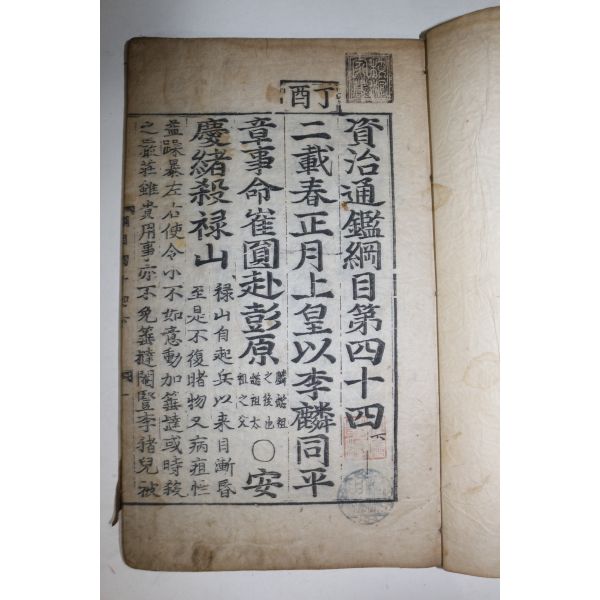 丁酉
資治通鑑綱目第四十四下
二載春正月上皇以李麟同平
章事命崔圓赴彭原麟懿祖之後也懿祖太祖之父○安
慶緒殺祿山祿山自起兵以來目漸昏
至是不復睹物又病疽性
益躁暴左右使令小不如意動加箠撻或時殺
之嚴莊雖貴用事亦不免箠撻閹豎李猪兒被